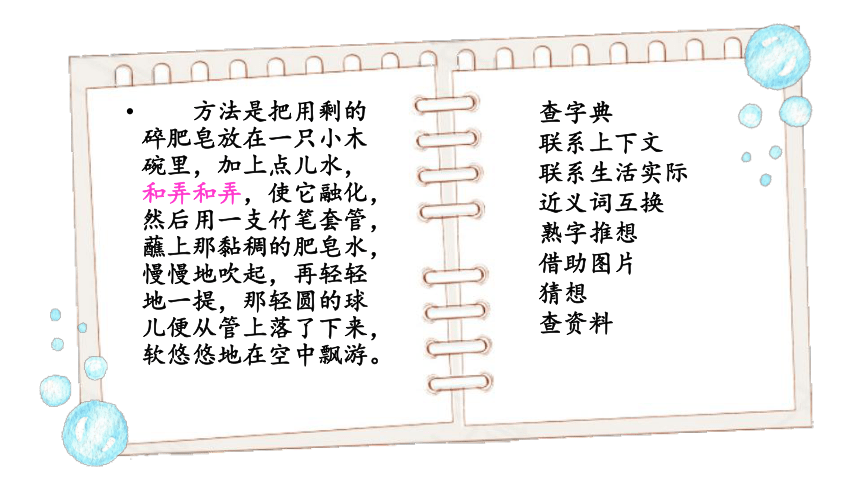 • 方法是把用剩的
碎肥皂放在一只小木
碗里，加上点儿水，
和弄和弄，使它融化，
然后用一支竹笔套管，
蘸上那黏稠的肥皂水，
慢慢地吹起，再轻轻
地一提，那轻圆的球
儿便从管上落了下来，
软悠悠地在空中飘游。
查字典
联系上下文
联系生活实际
近义词互换
熟字推想
借助图片
猜想
查资料